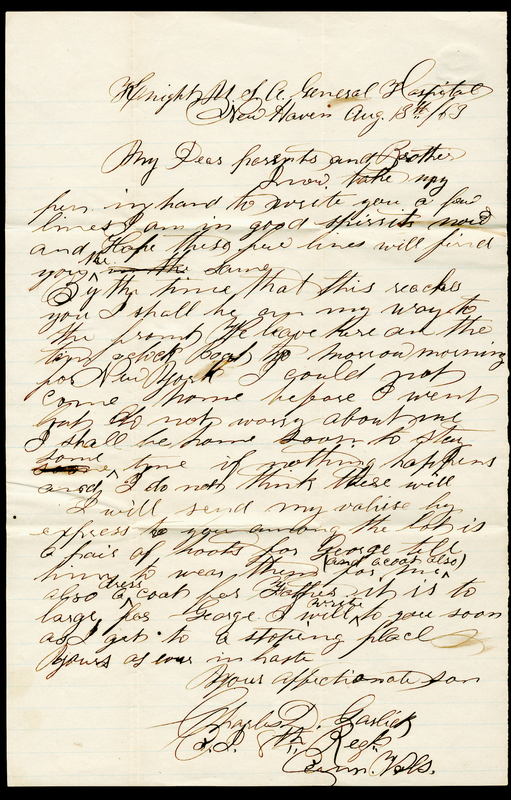 Knight U. S. A. General Hospital
New Haven Aug. 13th/63
My Dear parents and Brother
I now take my
pen in hand to write you a few
lines I am in good spirits now
and Hope these few lines will find
you the in the same
By the time that this reaches
you I shall be on my way to
the front We leave here on the
ten oclock boat to morrow morning
for New York I could not
come home before I went
but do not worry about me
I shall be home soon to stay
some time if nothing happens
and I do not think there will
I will send my valise by
express to you among the lot is
a pair of boots for George tell
him to wear them for me (and a coat also)
also a dress coat for Father it is to
large for George I will write to you soon
as I get to a stoping place
Yours as ever in haste
Your affectionate son
Charles D. Garlick
Co. I. 8th Regt.
Conn. Vols.